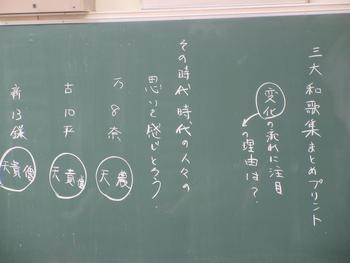 三大和歌集まとめプリント
変化の流れに注目
の理由は？
その時代時代の人々の
思いを感じとろう。
万 8 奈 天農
古 10 平 天貴僧
新 13 鎌 天貴僧